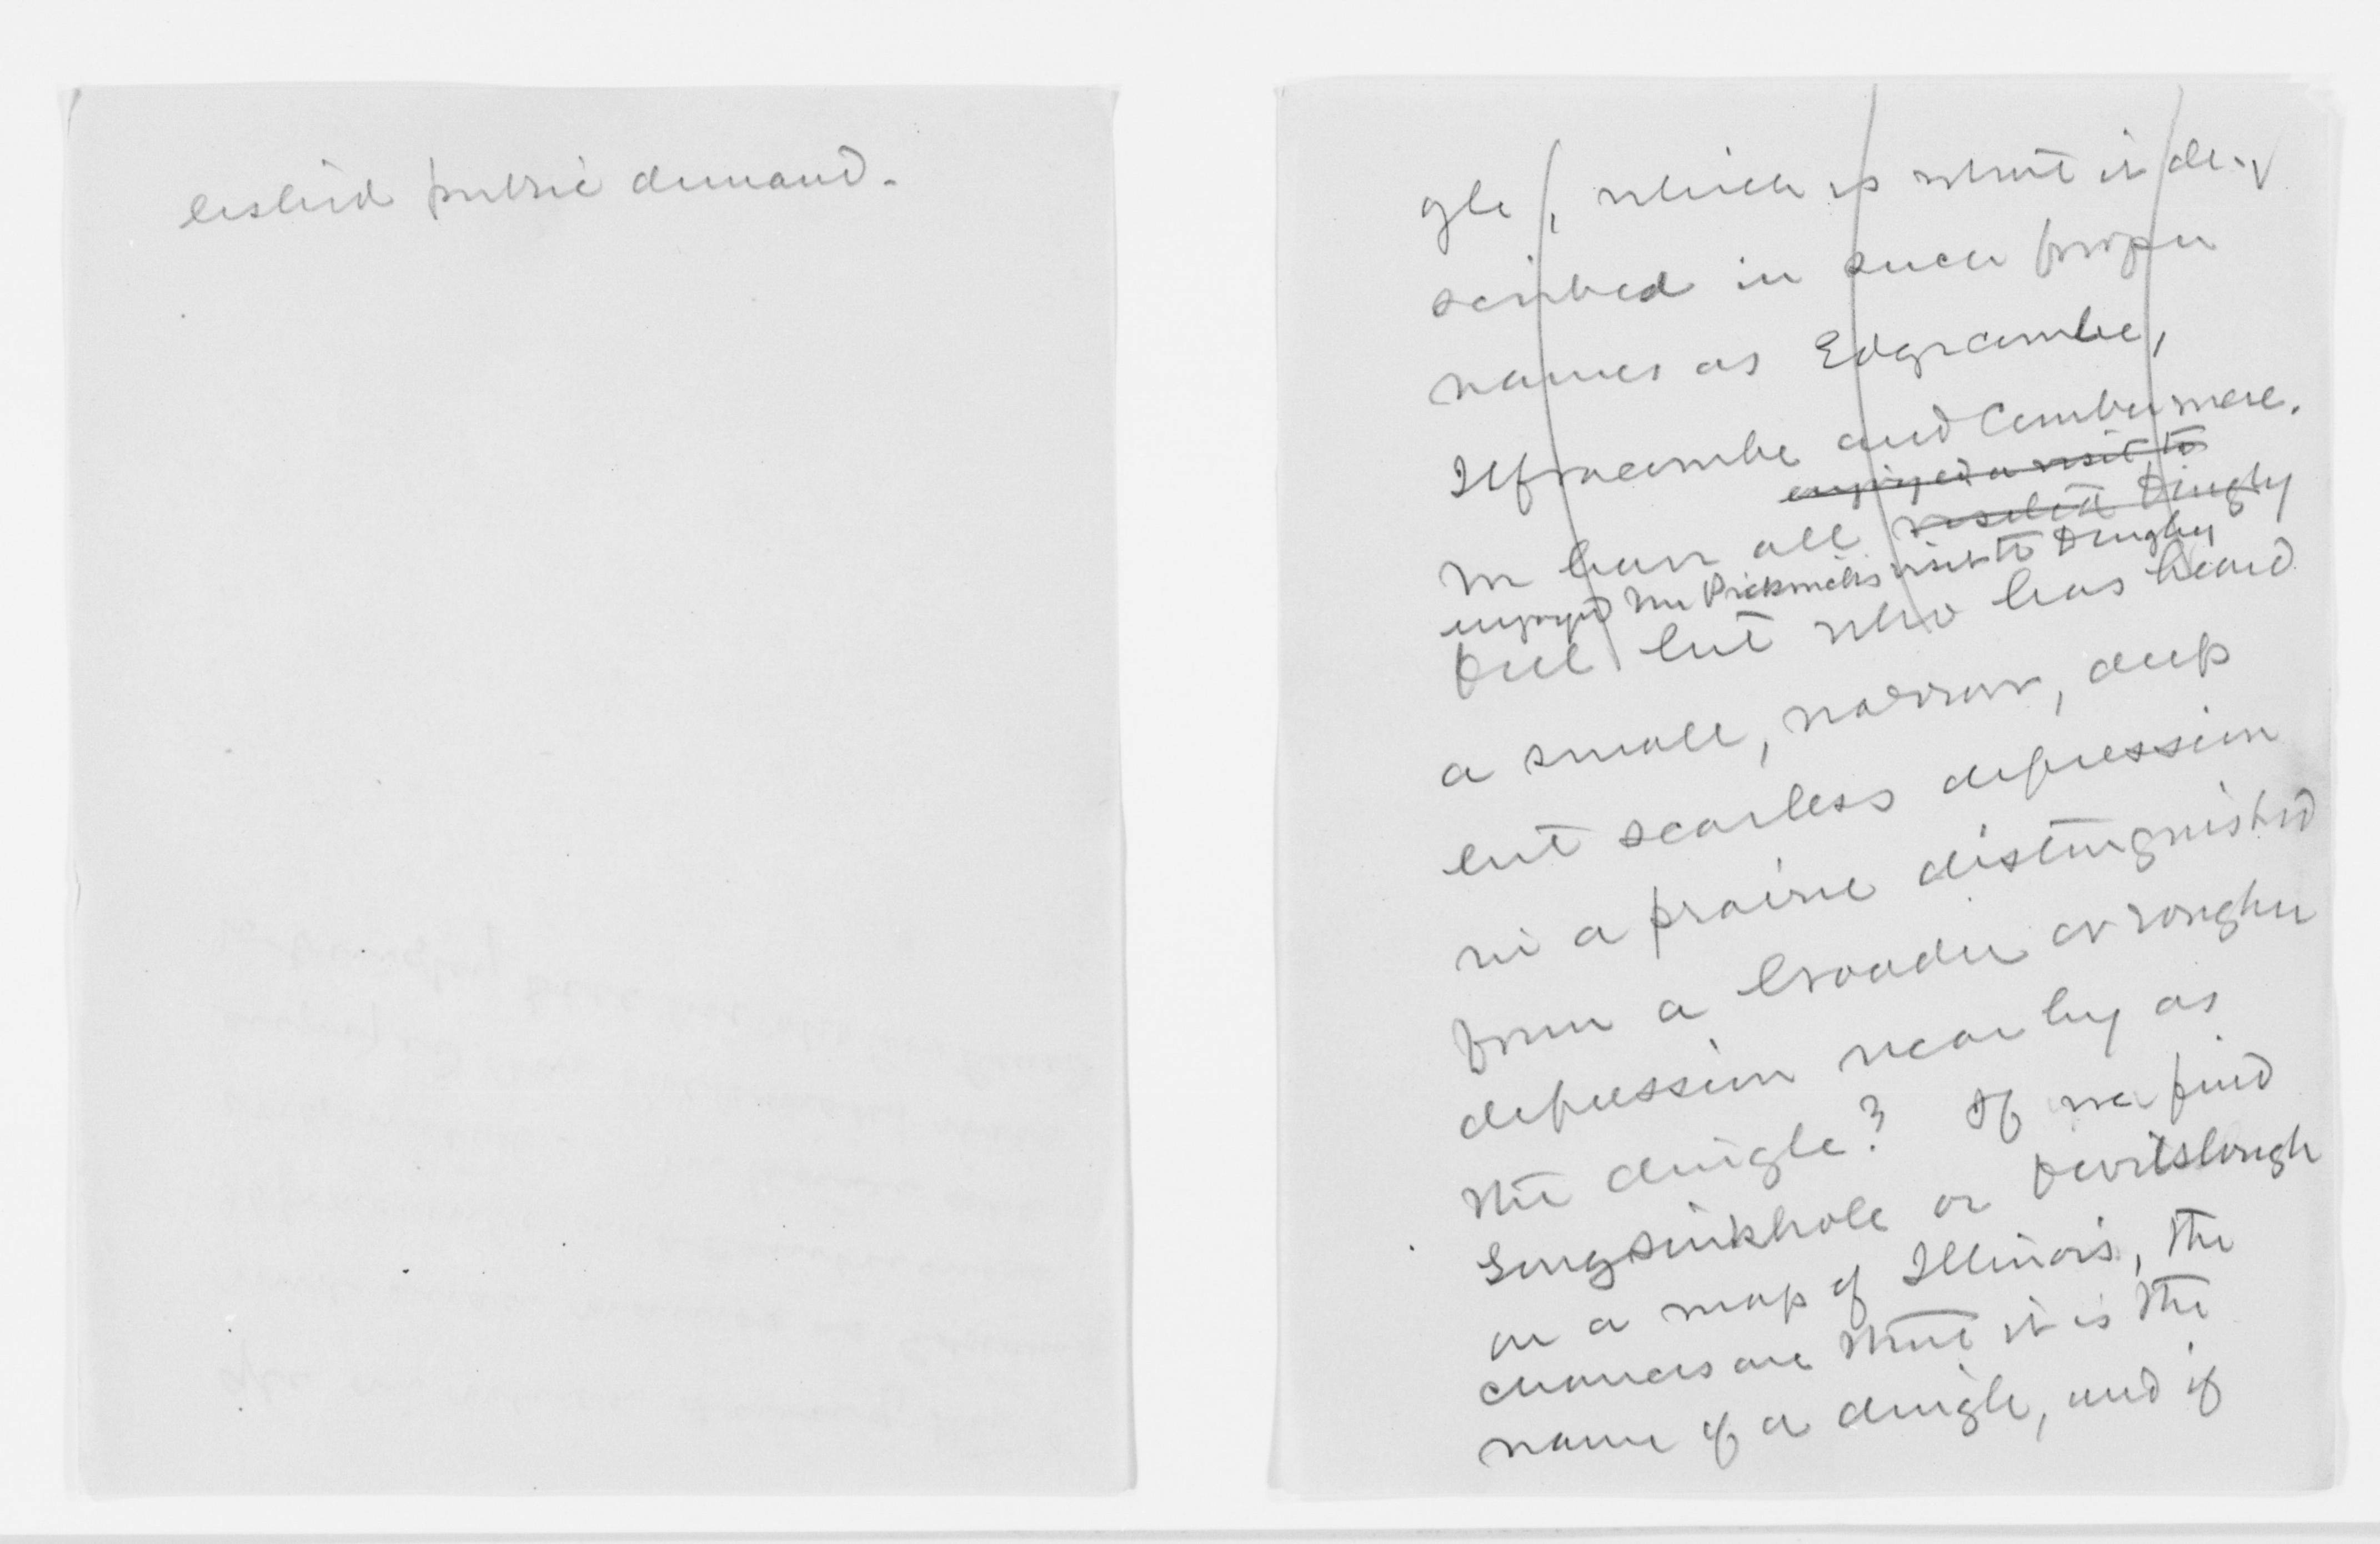 lished public demand.
gle, which is what is de-
scribed in such proper
names as Edgecombe,
Ilfracombe and Combermere.
enjoyed a visit to
We have all visited Dingley
enjoyed Mr Pickwick's visit to Dingley
Dell but who has heard
a small, narrow, deep
but scarless depression
in a prairie distinguished
from a broader or rougher
depression nearby as
the dingle? If we find
sinkhole or Devilslough
on a map of Illinois, the
chances are that it is the
name of a dingle, and if